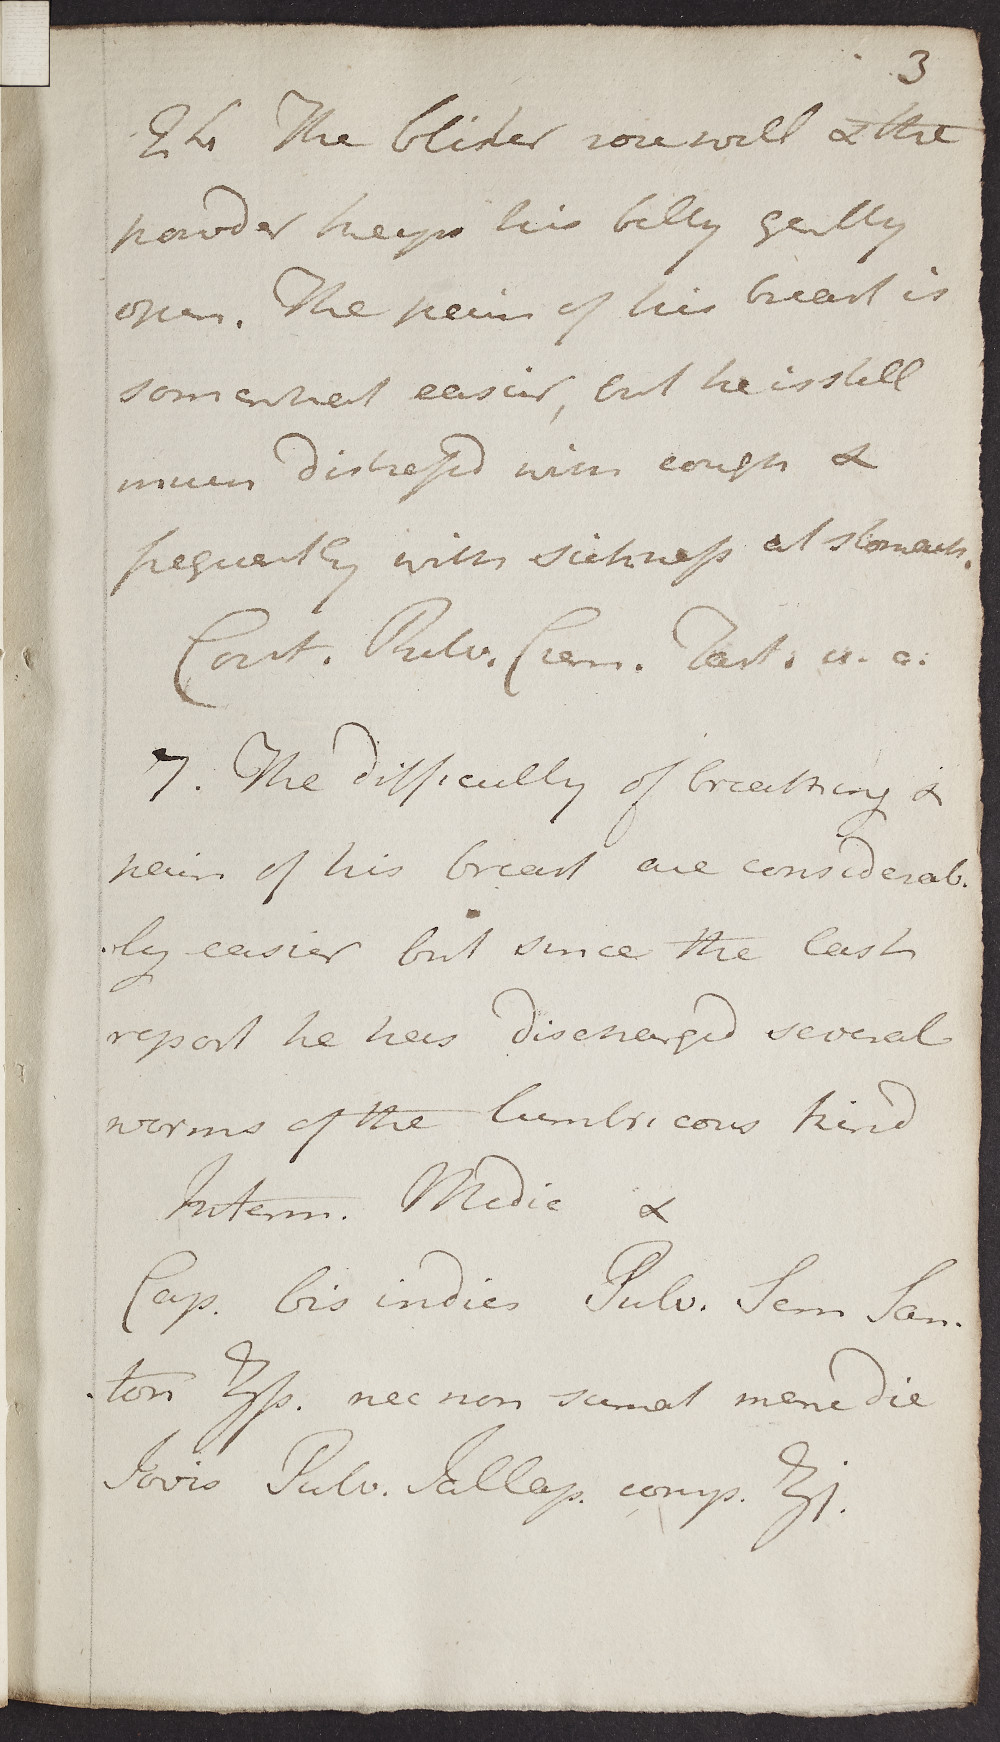 3
24 The blister rose well & the
powder keeps his belly gently
open. The pain of his breast is
somewhat easier, but he is still
much distressd with cough &
frequently with sickness at stomach.
Cont. Pulv. Crem. Tart. u. a.
7. The difficulty of breathing &
pain of his breast are considerab.
.ly easier but since the last
report he has discharged several
worms of the lumbricous kind
Interm. Medic &
Cap. bis indies Pulv. Sem San.
.ton ʒſs. nec non sumat mene die
Jovis Pulv. Jallap. comp. ʒj.